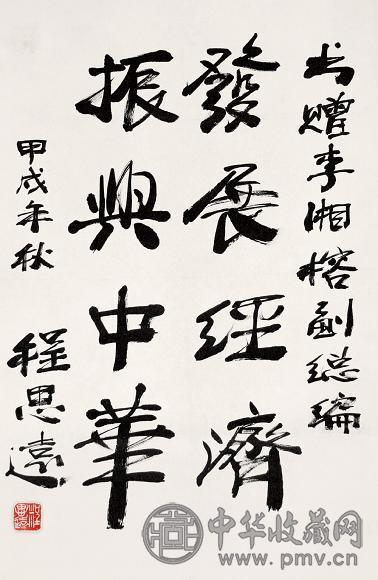 书赠李湘榕副总编
發展经濟
振興中華
甲戌年秋
程思远
中华收藏网
www.pmv.cn